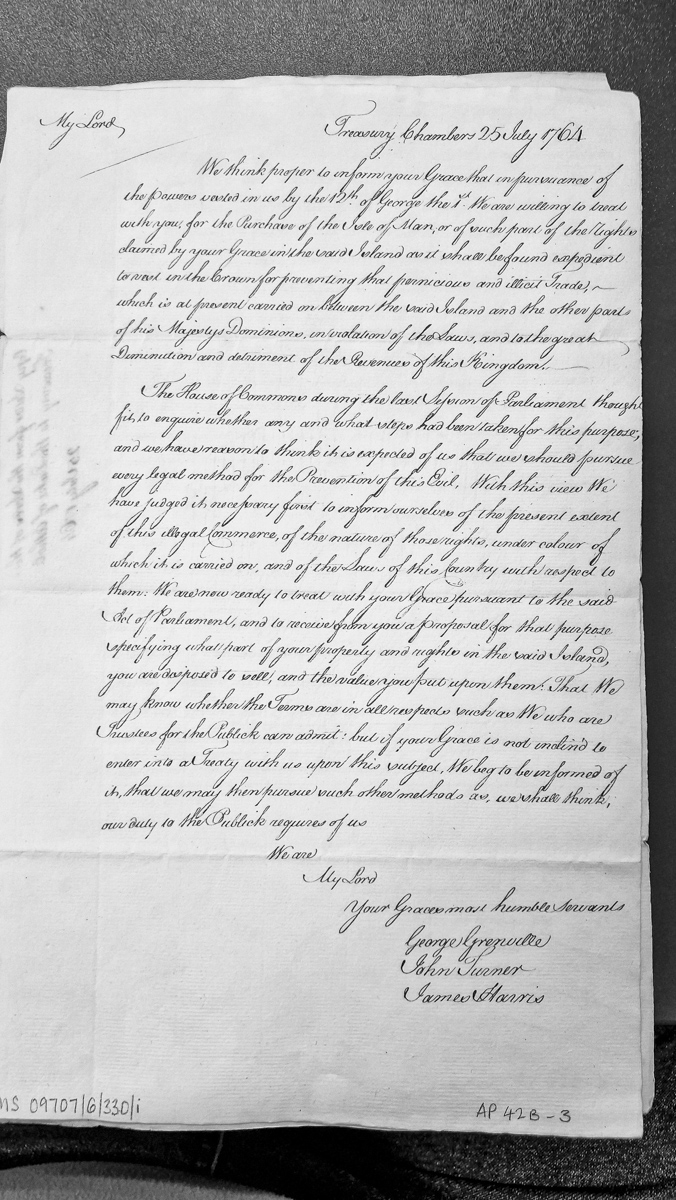 My Lord,
Treasury Chambers 25 July 1764
We think proper to inform your Grace that in pursuance of
the powers vested in us by the 12th. of George the 1st. We are willing to treat
with you, for the Purchase of the Isle of Man, or of such part of the Rights
claimed by your Grace in the said Island as it shall be found expedient
to vest in the Crown for preventing that pernicious and illicit Trade,
which is at present carried on between the said Island and the other parts
of his Majestys Dominions, in violation of the Laws, and to the great
Diminution and detriment of the Revenues of this Kingdom.
The House of Commons during the last Session of Parliament thought
fit, to enquire whether any and what steps had been taken for this purpose,
and we have reason to think it is expected of us that we should pursue
every legal method for the Prevention of this Evil, With this view We
have judged it necessary first to inform ourselves of the present extent
of this illegal Commerce, of the nature of those rights, under colour of
which it is carried on, and of the Laws of this Country with respect to
them: We are now ready to treat with your Grace pursuant to the said
Act of Parliament, and to receive from you a Proposal for that purpose
specifying what part of your property and rights in the said Island,
you are disposed to sell, and the value you put upon them: That We
may know whether the Terms are in all respects such as We who are
Trustees for the Publick can admit: but if your Grace is not inclind to
enter into a Treaty with us upon this subject, We beg to be informed of
it, that we may then pursue such other methods as, we shall think,
our duty to the Publick requires of us
We are
My Lord
Your Graces most humble Servants
George Grenville
John Turner
James Harris
MS 09707/6/330/i
AP 42B-3